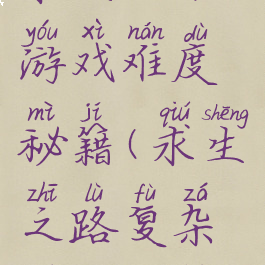 yóu xì nán dù
游戏难度
mì jí qiú shēng
秘籍(求生
zhī lù fù zá
之路复杂